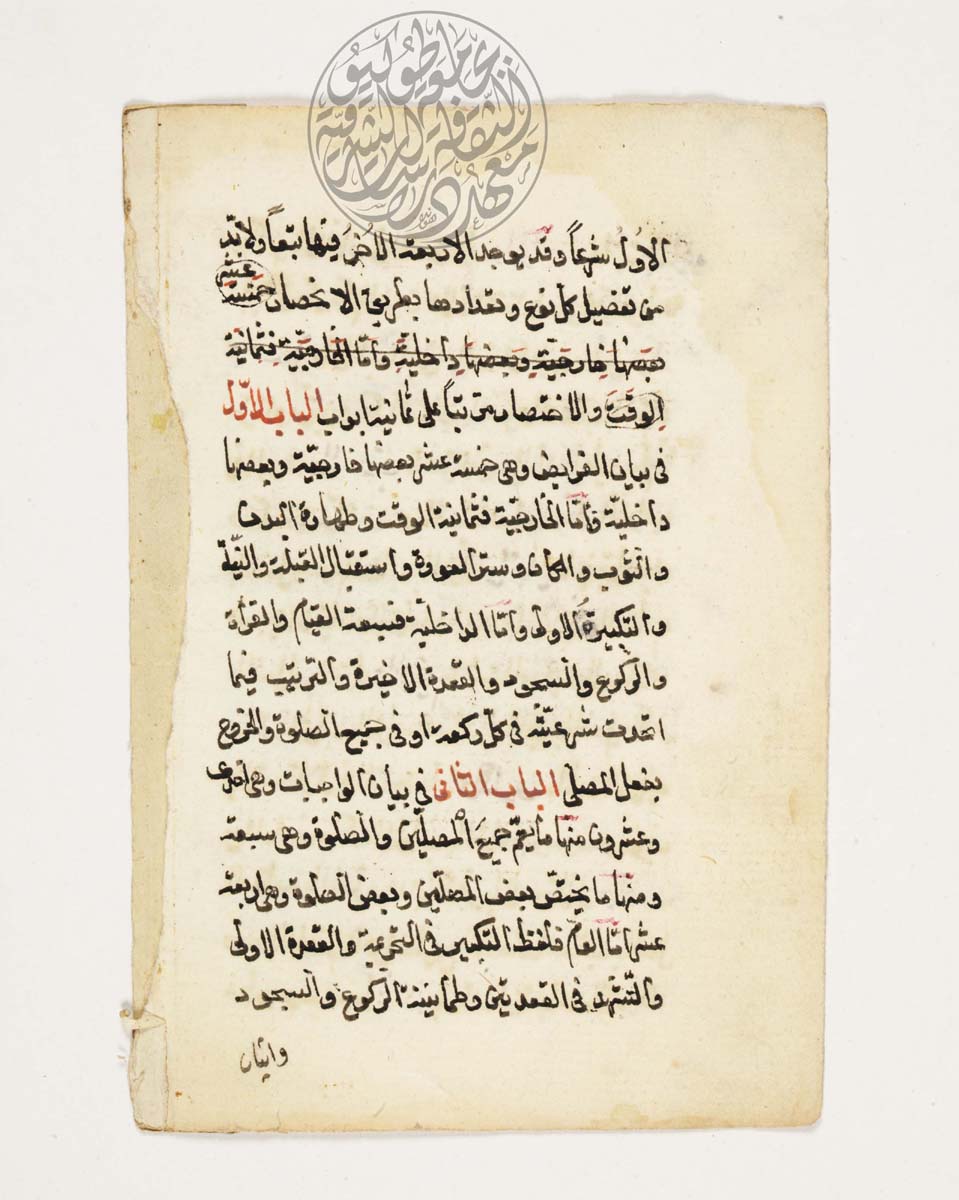 الاول شرعاً وقد يوجد الاربعة الاُخَر فيها تبعاً ولا بدّ
من تفصيل كل نوع وتعدادها بطريق الانحصار خمسة عشر
بعضها خارجيّة وبعضها داخليّة وأمّا الخارجيّة فثمانية
الوقت والاختصار مرتباً على ثمانية ابواب الباب الاوّل
فى بيان الفرايض وهى خمسة عشر بعضها خارجيّة وبعضها
داخليّة فأمّا الخارجيّة فثمانية الوقت وطهارة البدن
والثوب والمكان وستر العورة واستقبال القبلة والنيّة
والتكبيرة الاولى وامّا الداخلية فسبعة القيام والقرأة
والركوع والسجود والقعدة الاخيرة والترتيب فيما
اتحدت شرعيّته فى كلّ ركعة او فى جميع الصلوة والخروج
بفعل المصلّى الباب الثانى فى بيان الواجبات وهى احدى
وعشرون منها ما يعمّ جميعَ المصلّين والصلوة وهى سبعة
ومنها ما يختصّ بعض المصلّين وبعض الصلوة وهى اربعة
عشر امّا العامّ فلفظ التكبير فى التحريمة والقعدة الاولى
والتشهد فى القعدتين وطمانينة الركوع والسجود
واتيان